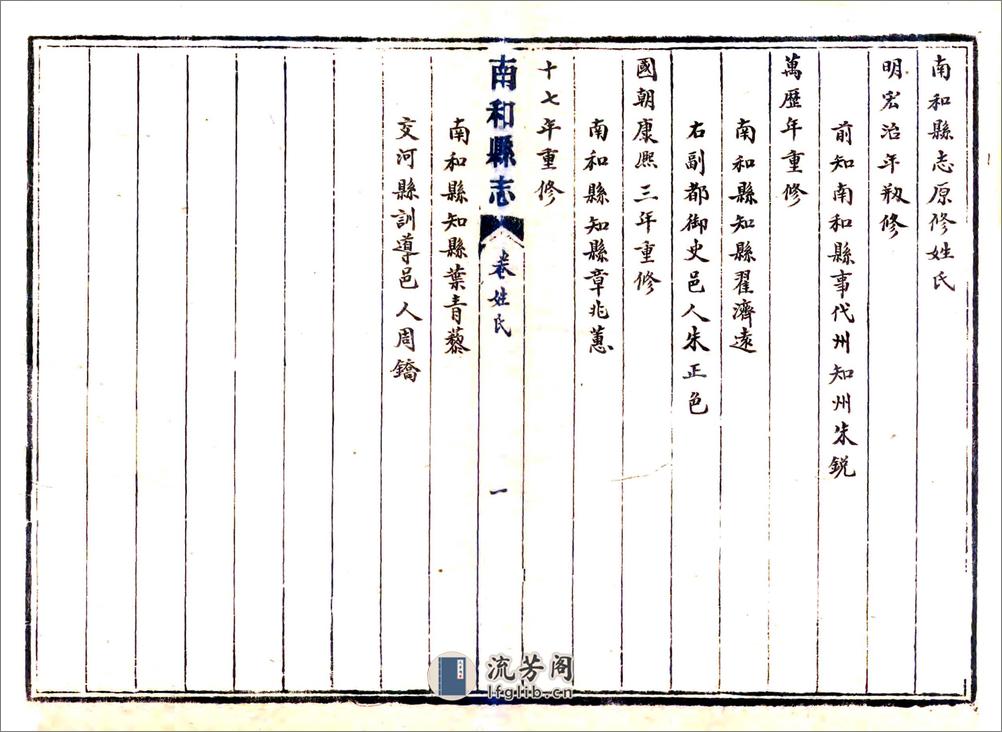 南和縣志原修姓氏
明宏治年剏修
前知南和縣事代州知州朱銳
萬歴年重修
南和縣知縣翟濟遠
右副都御史邑人朱正色
國朝康熙三年重修
南和縣知縣章兆蕙
十七年重修
南和縣志 卷姓氏 一
南和縣知縣葉青藜
交河縣訓導邑人周鐈
流芳阁
lfglib.cn